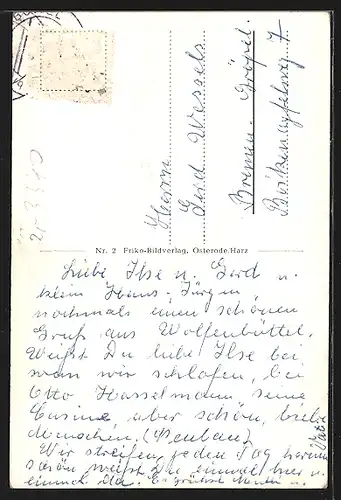 Herrn
Gerd Wessels
Bremen-Gröpel.
7
Nr. 2 Friko-Bildverlag, Osterode/Harz
Liebe Ilse u. Gerd u.
klein Hans-Jürgen
nochmals einen schönen
Gruß aus Wolfenbüttel.
Weißt Du liebe Ilse bei
wem wir schlafen, bei
Otto Hasselmann seine
aber schön, beide
(Neubau)
Wir streifen jeden Tag herum
schön, weißt Du einmal hier u.
einmal da.